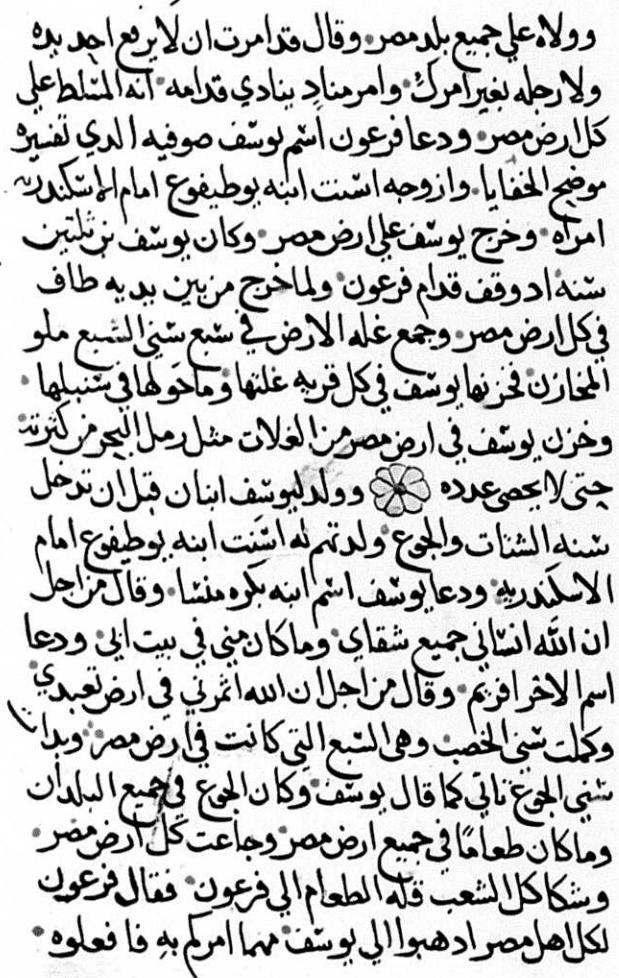 وولاه علي جميع بلد مصر وقال قد امرت ان لا يرفع احد يده
ولا رجله بغير امرك وامر مناد ينادي قدامه انه المتسلط علي
كل ارض مصر ودعا فرعون اسم يوسف صوفيه الدي تفسيره
موضح الخفايا وازوجه اسنت ابنه بوطيفوع امام الاسكندريه
امراه وخرج يوسف علي ارض مصر وكان يوسف بن ثلتين
سنه اد وقف قدام فرعون ولما خرج من بين يديه طاف
في كل ارض مصر وجمع غله الارض في سبع سني الشبع ملو
المخازن فخزنها يوسف في كل قريه غلتها وما حولها في سنبلها
وخزن يوسف في ارض مصر من الغلات مثل رمل البحر من كثرته
حتى لا يحصى عدده وولد ليوسف ابنان قبل ان تدخل
سنه الشتات والجوع ولدتهم له اسنت ابنه بوطيفوع امام
الاسكندريه ودعا يوسف اسم ابنه بكره منسا وقال من اجل
ان الله انساني جميع شقاي وما كان مني في بيت ابي ودعا
اسم الاخر افريم وقال من اجل ان الله اثمرني في ارض تعبدي
وكملت سني الخصب وهي السبع التي كانت في ارض مصر وبدات
سني الجوع تاتي كما قال يوسف وكان الجوع في جميع البلدان
وما كان طعامًا في جميع ارض مصر وجاعت كل ارض مصر
وشكا كل الشعب قله الطعام الي فرعون فقال فرعون
لكل اهل مصر ادهبوا الي يوسف مهما امركم به فافعلوه